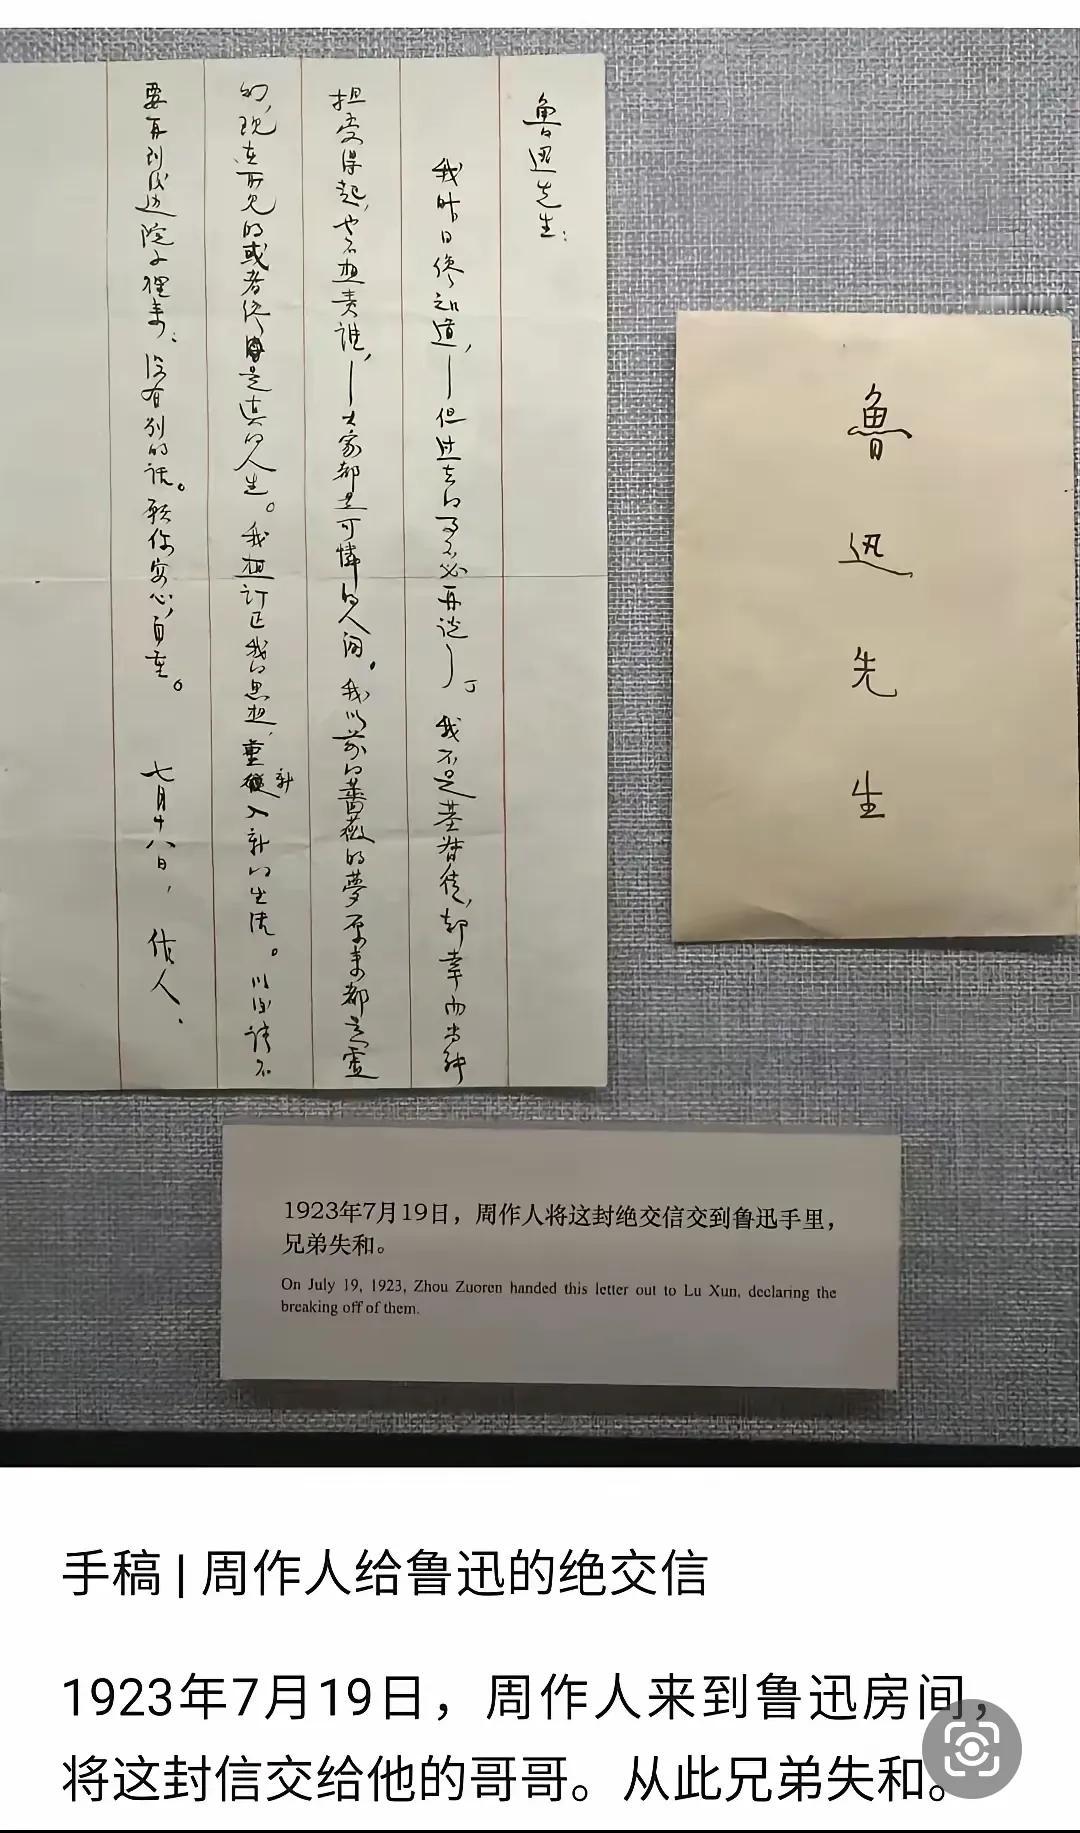 魯迅先生：
我昨日俢知道，——但过去的事不必再说了。我不是基督徒，却幸而尚能
担受得起，也不想责谁，——大家都是可憐的人间。我以前的薔薇的夢原来都是虚
幻，现在所见的或者俢是真的人生。我想订正我的思想，重新入新的生活。以后请不
要再到后边院子裡来，没有别的话。願你安心，自重。
七月十八日，作人。
魯迅先生
1923年7月19日，周作人将这封绝交信交到鲁迅手里，
兄弟失和。
On July 19, 1923, Zhou Zuoren handed this letter out to Lu Xun, declaring the
breaking off of them.
手稿 | 周作人给鲁迅的绝交信
1923年7月19日，周作人来到鲁迅房间，
将这封信交给他的哥哥。从此兄弟失和。